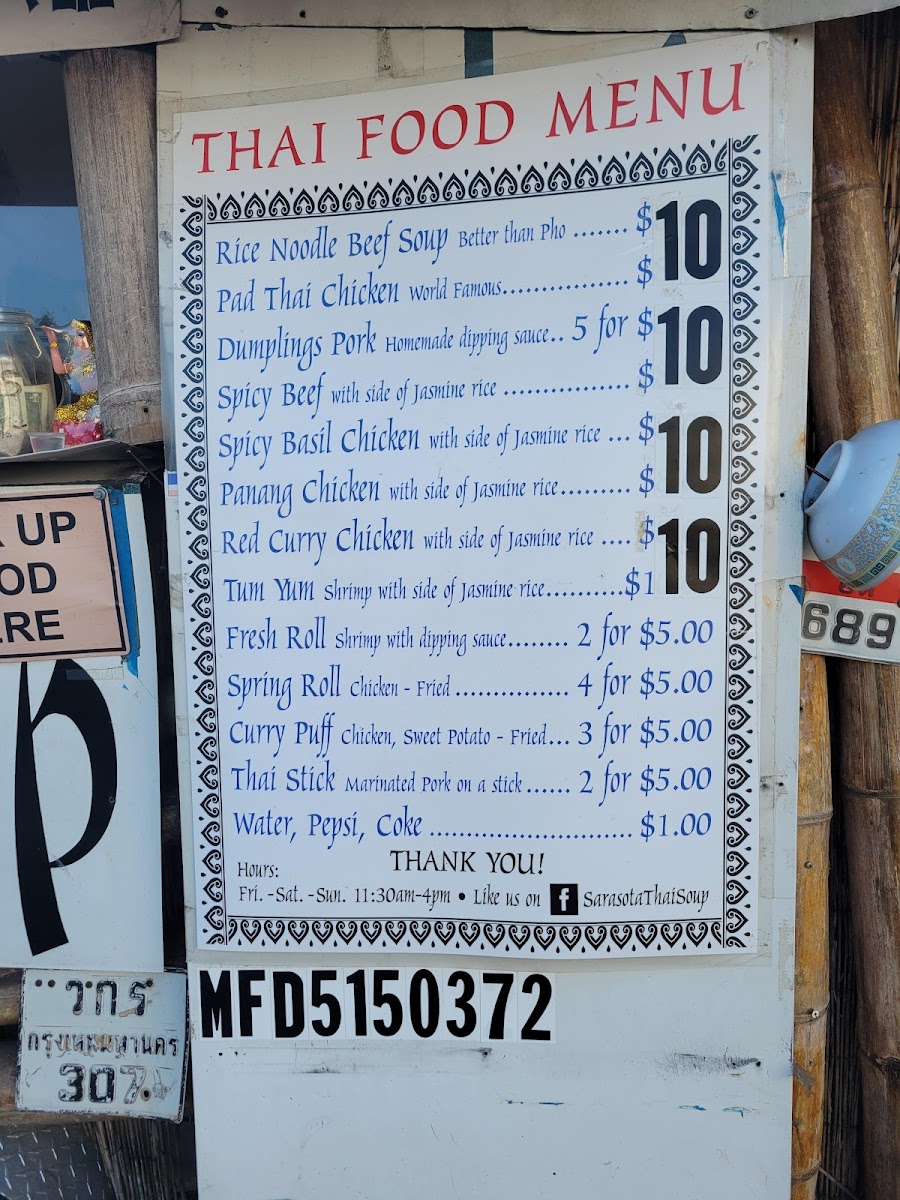 THAI FOOD MENU
Rice Noodle Beef Soup Better than Pho ....... $10
Pad Thai Chicken World Famous................. $
Dumplings Pork Homemade dipping sauce.. 5 for $10
Spicy Beef with side of Jasmine rice ................. $
Spicy Basil Chicken with side of Jasmine rice ... $10
Panang Chicken with side of Jasmine rice......... $
Red Curry Chicken with side of Jasmine rice .... $10
Tum Yum Shrimp with side of Jasmine rice...........$1
Fresh Roll Shrimp with dipping sauce........ 2 for $5.00
Spring Roll Chicken - Fried ................ 4 for $5.00
Curry Puff Chicken, Sweet Potato - Fried... 3 for $5.00
Thai Stick Marinated Pork on a stick ...... 2 for $5.00
Water, Pepsi, Coke ........................... $1.00
THANK YOU!
Hours:
Fri. -Sat. -Sun. 11:30am-4pm • Like us on f SarasotaThaiSoup
MFD5150372
UP
OD
RE
p
689
วกร
กรุงเทพมหานคร
307